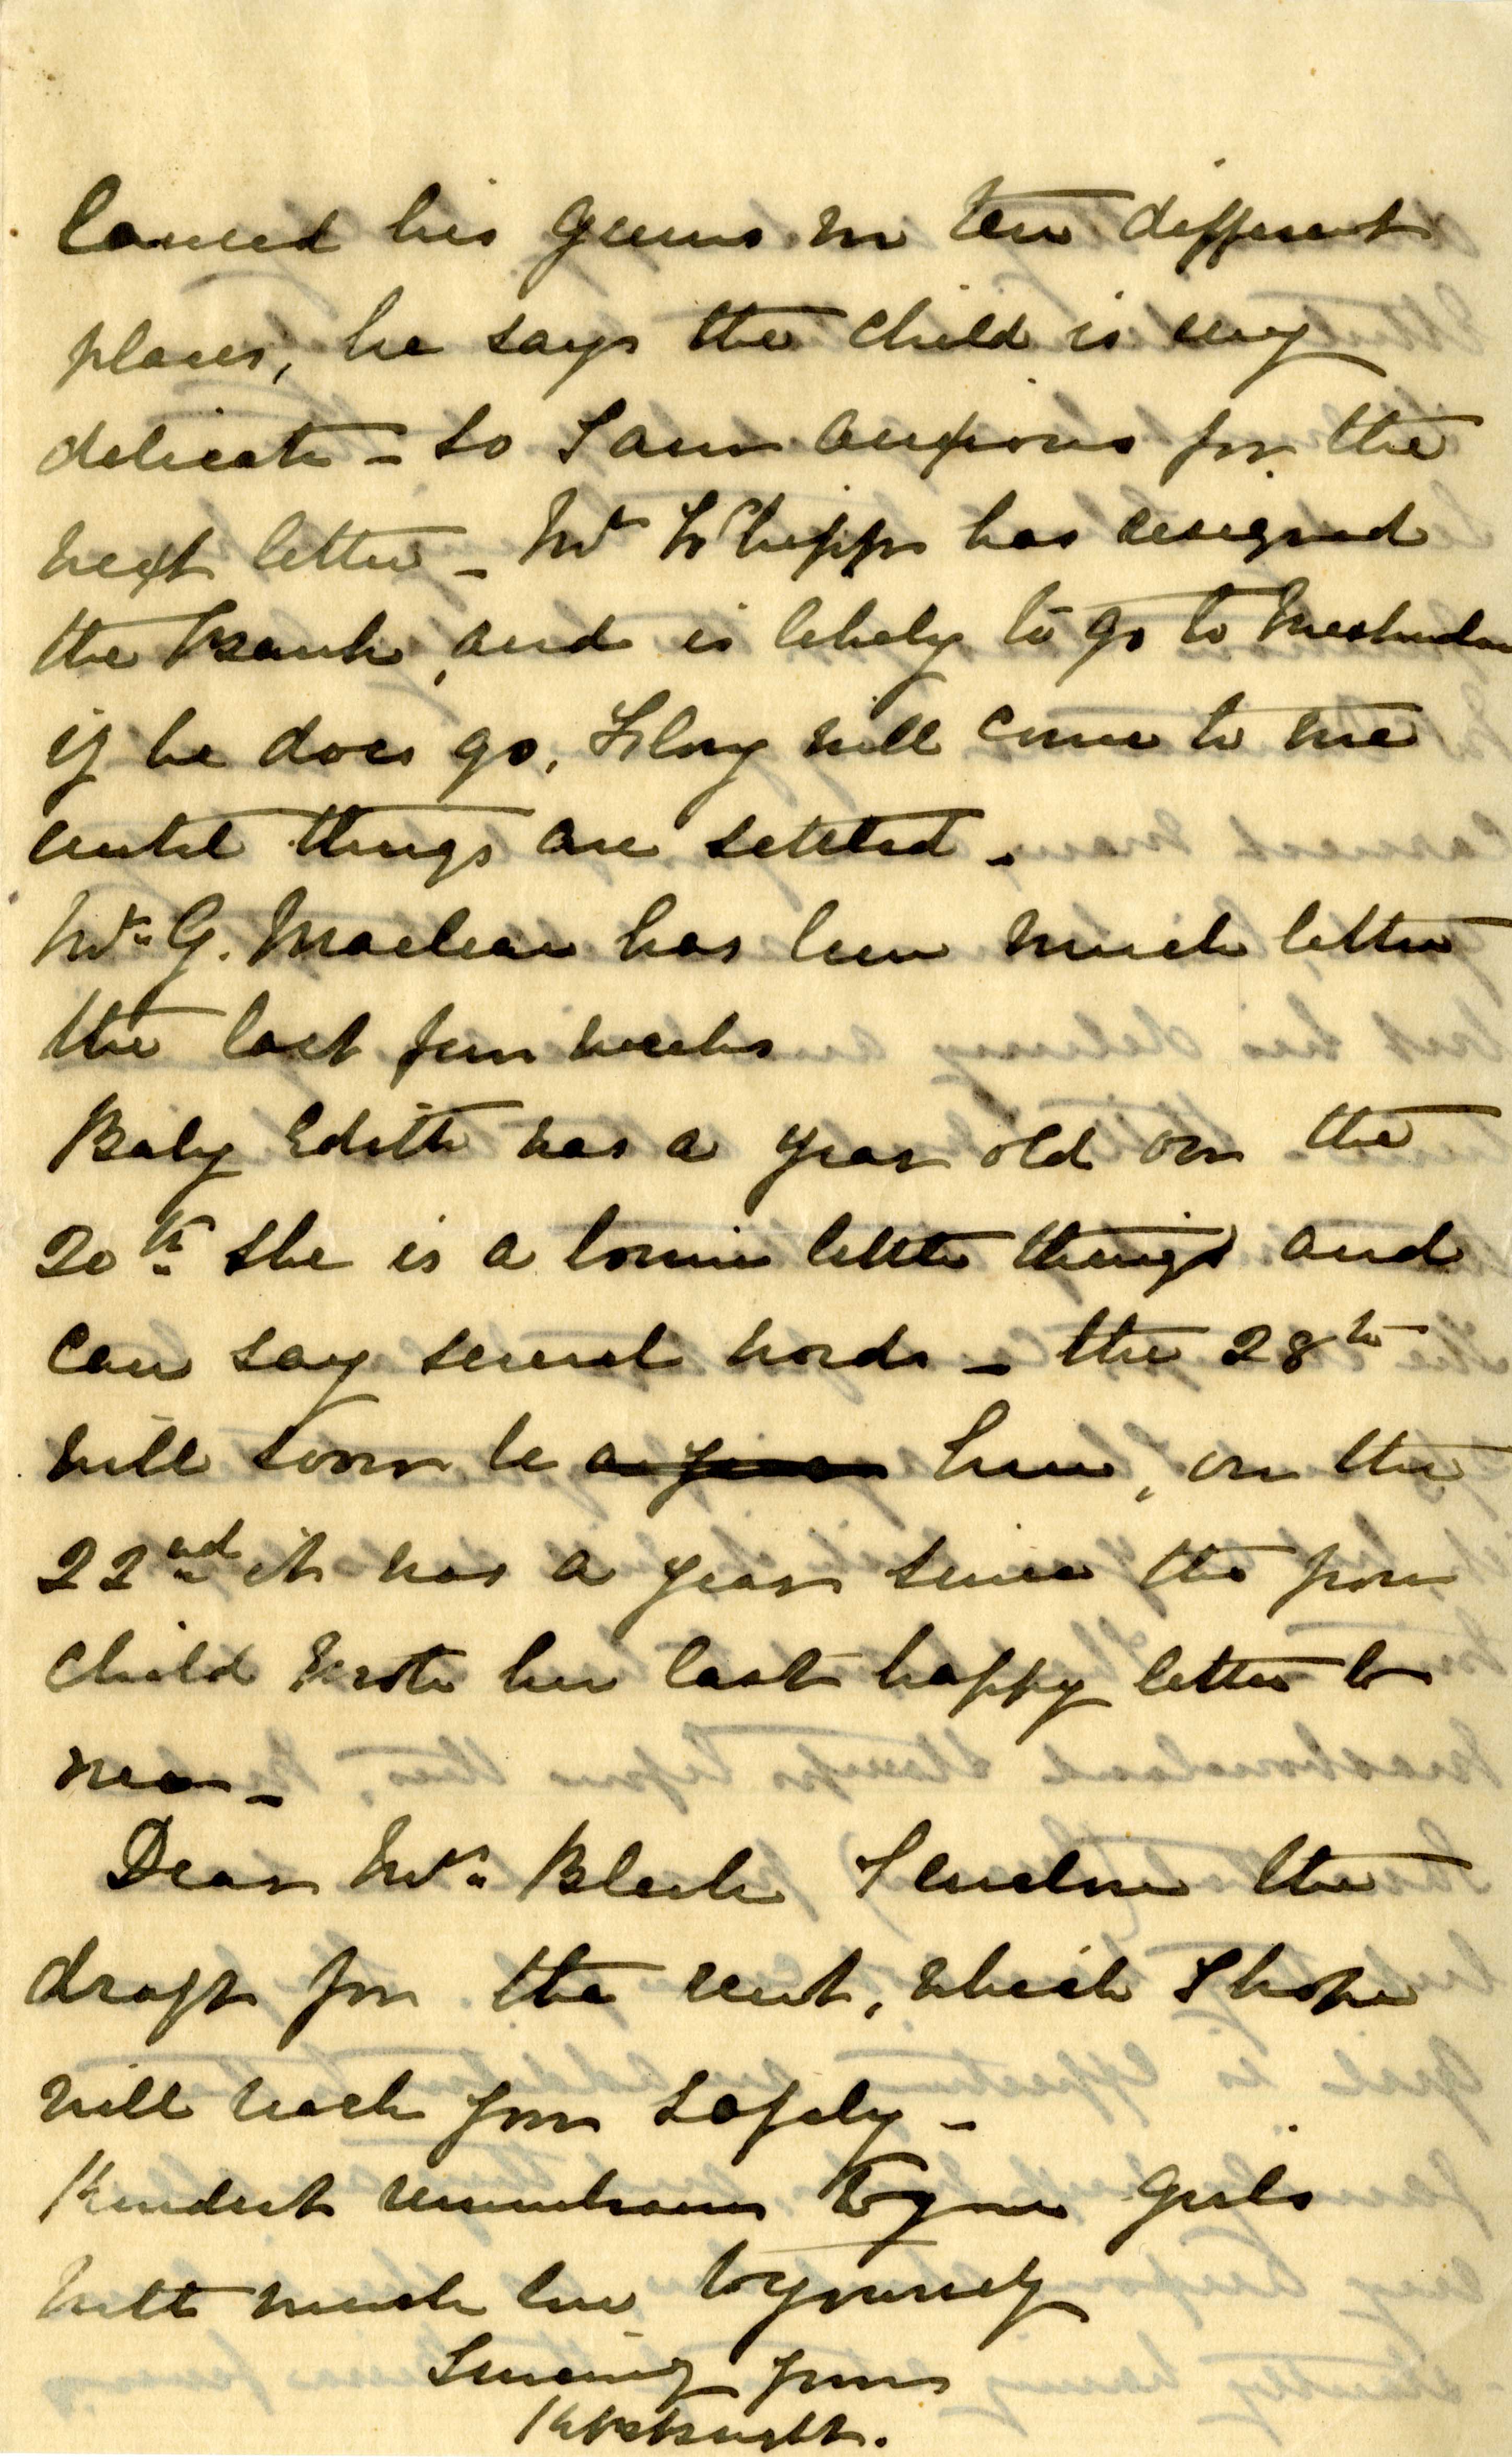 lanced his gums in ten different
places, he says the child is very
delicate – so I am anxious for the
next letter – Mr Whipp has resigned
the Bank, and is likely to go to
if he does go, will come to me
until things are settled –
Mrs G. Maclean has been much better
the last few weeks
Baby Edith was a year old on the
20th she is a bonnie little thing and
can say several words – the 28th
will soon be a year here, on the
22nd it was a year since the poor
child wrote her last happy letter to
me –
Dear Mrs Black I enclose the
draft for the rent, which I hope
will reach you safely –
Kindest remembrances to your girls
with much love to yourself
Sincerely yours